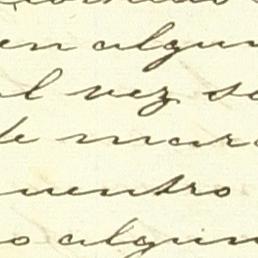 en algun
al vez se
de mar
uentro
o algun